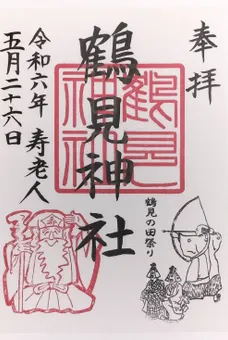 奉拝
鶴見
神社
鶴見神社
鶴見の田祭り
令和六年 寿老人
五月二十六日